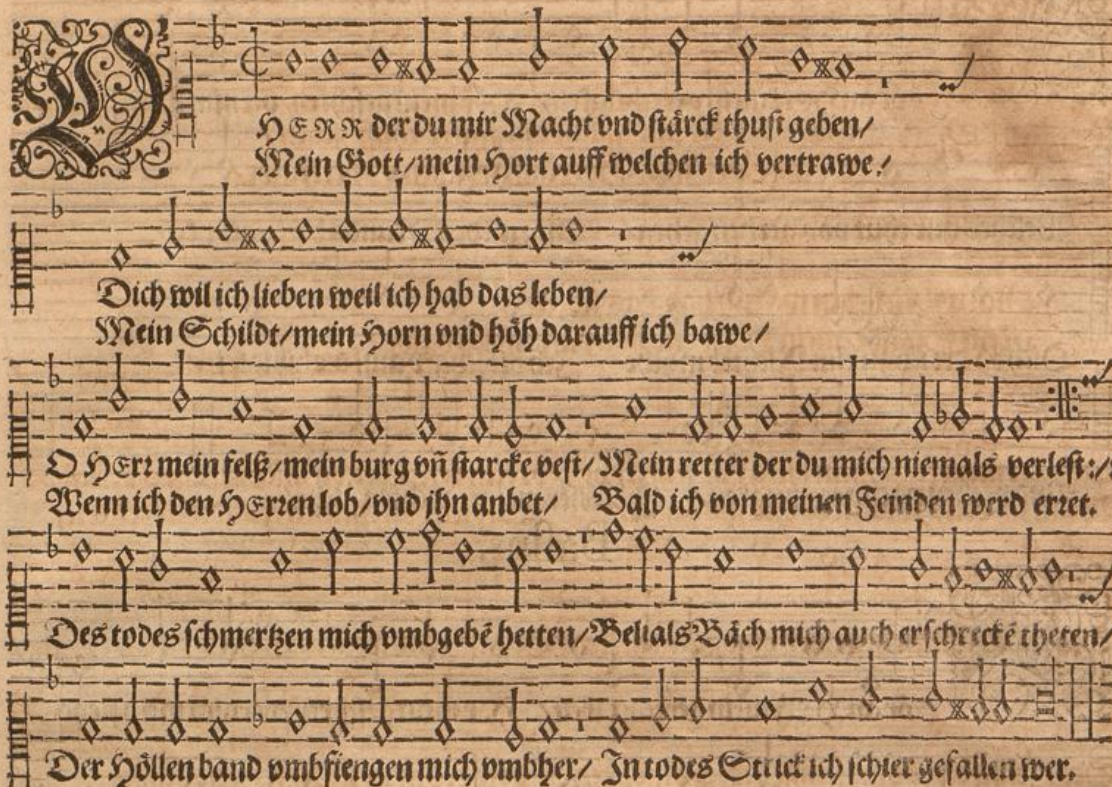 O HERR der du mir Macht vnd stärck thust geben/
Mein Gott/mein Hort auff welchen ich vertrawe/
Dich wil ich lieben weil ich hab das leben/
Mein Schildt/mein Horn vnd höh darauff ich bawe/
O HErr mein felß/mein burg vn̄ starcke vest/ Mein retter der du mich niemals verlest:/:
Wenn ich den HErren lob/vnd jhn anbet/ Bald ich von meinen Feinden werd erret.
Des todes schmertzen mich vmbgebē hetten/Belials Bäch mich auch erschreckē theten/
Der Höllen band vmbfiengen mich vmbher/ In todes Strick ich schier gefallen wer.